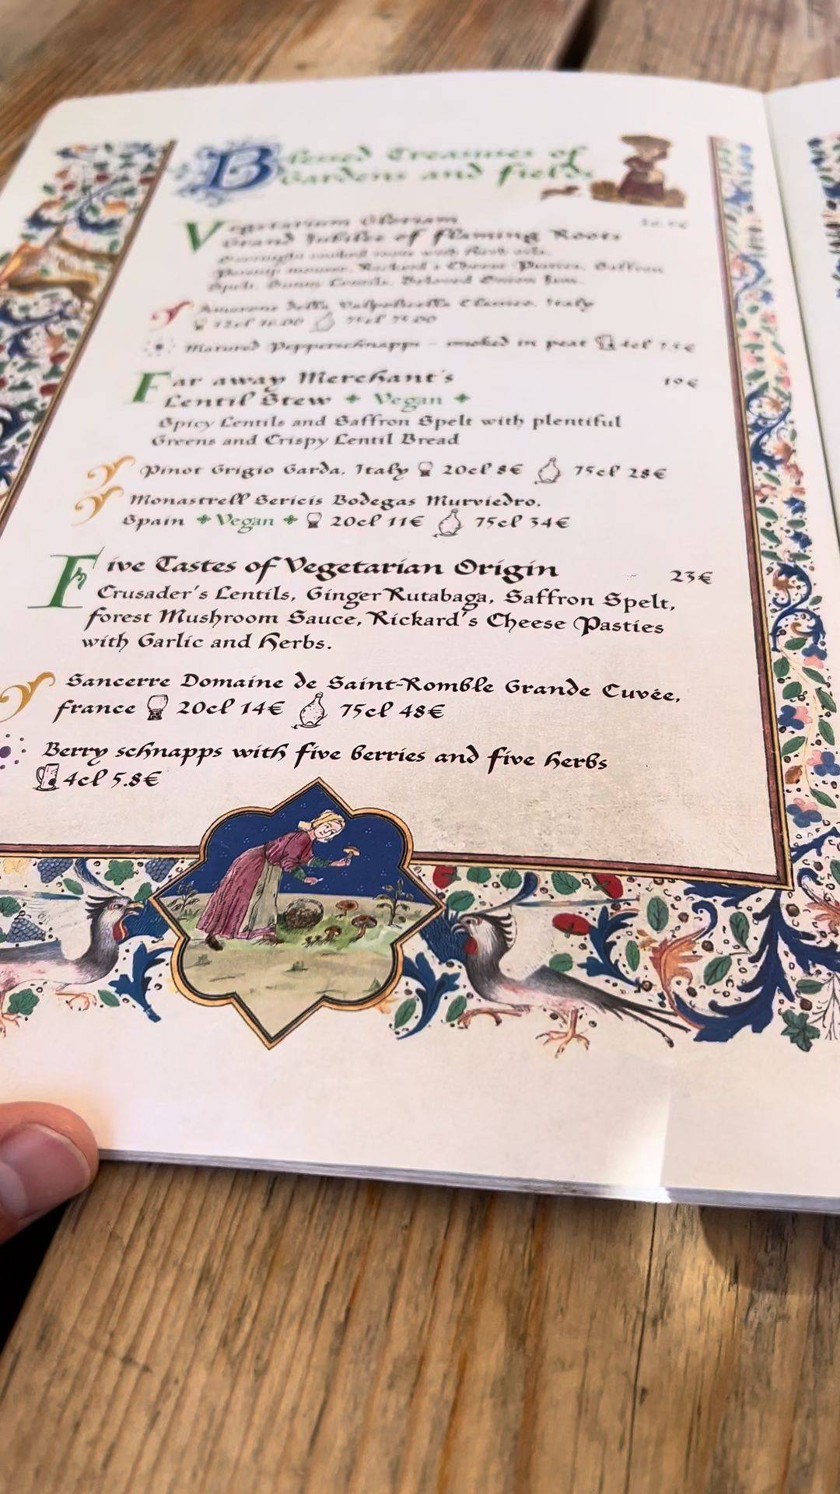 Blessed Treasures of
Gardens and Fields
Vegetarium Gloriam
Grand Jubilee of Flaming Roots
Overnight cooked roots with Herb oils,
Parsnip mousse, Rickard's Cheese Pasties, Saffron
Spelt, Lentils, Beloved Onion Jam.
Amarone della Valpolicella Classico, Italy
12cl 16.00 75cl
Matured Pepperschnapps - smoked in peat 4cl
Far away Merchant's
Lentil Stew Vegan
19€
Spicy Lentils and Saffron Spelt with plentiful
Greens and Crispy Lentil Bread
Pinot Grigio Garda, Italy 20cl 8€ 75cl 28€
Monastrell Sericis Bodegas Murviedro,
Spain Vegan 20cl 11€ 75cl 34€
Five Tastes of Vegetarian Origin 23€
Crusader's Lentils, Ginger Rutabaga, Saffron Spelt,
Forest Mushroom Sauce, Rickard's Cheese Pasties
with Garlic and Herbs.
Sancerre Domaine de Saint-Romble Grande Cuvée,
France 20cl 14€ 75cl 48€
Berry schnapps with five berries and five herbs
4cl 5.8€